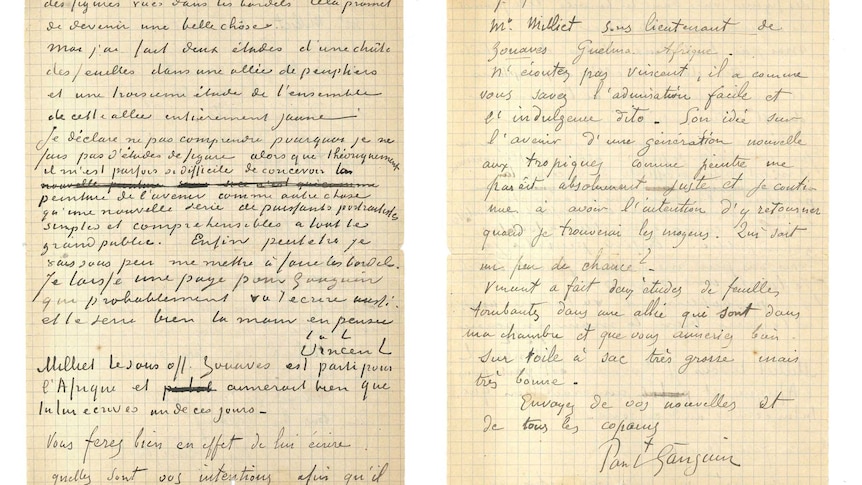 des figures vues dans les bordels cela promet
de devenir une belle chose
moi j'ai fait deux études d'une chûte
des feuilles dans une allée de peupliers
et une troisieme étude de l'ensemble
de cette allée entierement jaune.
Je déclare ne pas comprendre pourquoi je ne
fais pas d'études de figure alors que théoriquement
il m'est parfois si difficile de concevoir la
peinture de l'avenir comme autre chose
qu'une nouvelle serie de puissants portraitistes
simples et comprehensibles à tout le
grand public. Enfin peutetre je
vais sous peu me mettre à faire les bordels.
Je laisse une page pour Gauguin
qui probablement va t'ecrire aussi.
et te serre bien la main en pensée
t. à t.
Vincent
Milliet le sous off. Zouaves est parti pour
l'Afrique et aimerait bien que
tu lui ecrives un de ces jours -
Vous ferez bien en effet de lui écrire
quelles sont vos intentions afin qu'il
Mr Milliet sous lieutenant de
Zouaves Guelma Afrique.
N'écoutez pas Vincent, il a comme
vous savez l'admiration facile et
l'indulgence dito - Son idée sur
l'avenir d'une génération nouvelle
aux tropiques comme peintre me
parait absolument juste et je conti-
nue à avoir l'intention d'y retourner
quand je trouverai les moyens. Qui sait
un peu de chance?
Vincent a fait deux études de feuilles
tombantes dans une allée qui sont dans
ma chambre et que vous aimeriez bien.
Sur toile à sac très grosse mais
très bonne.
Envoyez de vos nouvelles et
de tous les copains
Paul Gauguin